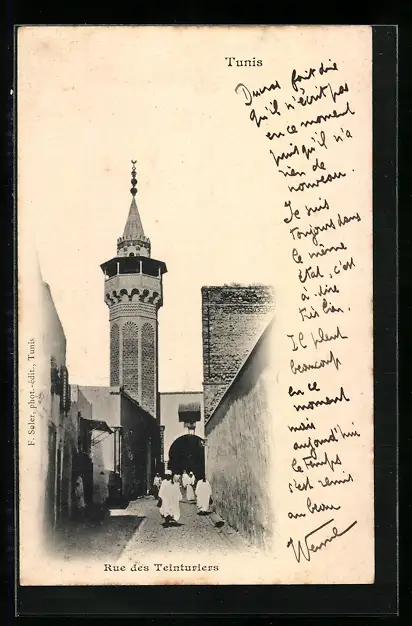 Tunis
Ducros fait dire
qu'il n'écrit pas
en ce moment
puisqu'il n'a
rien de
nouveau.
Je suis
toujours dans
le même
état, c'est
à-dire
très bien.
Il pleut
beaucoup
en ce
moment
mais
aujourd'hui
le temps
s'est remis
au beau
F. Soler, phot.-édit., Tunis
Rue des Teinturiers